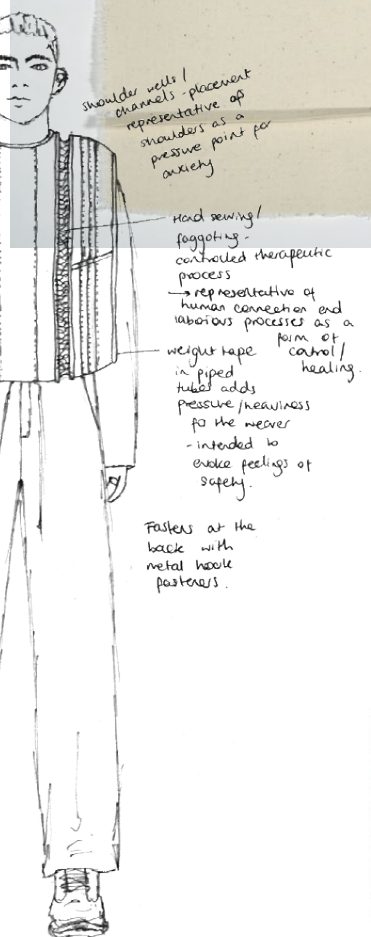 shoulder wells /
channels - placement
representative of
shoulders as a
pressure point for
anxiety
Hand sewing/
faggoting -
controlled therapeutic
process
→ representative of
human connection and
laborious processes as a
form of
control /
healing.
weight tape
in piped
tubes adds
pressure/heaviness
for the wearer
- intended to
evoke feelings of
safety.
Fastens at the
back with
metal hook
fasteners.